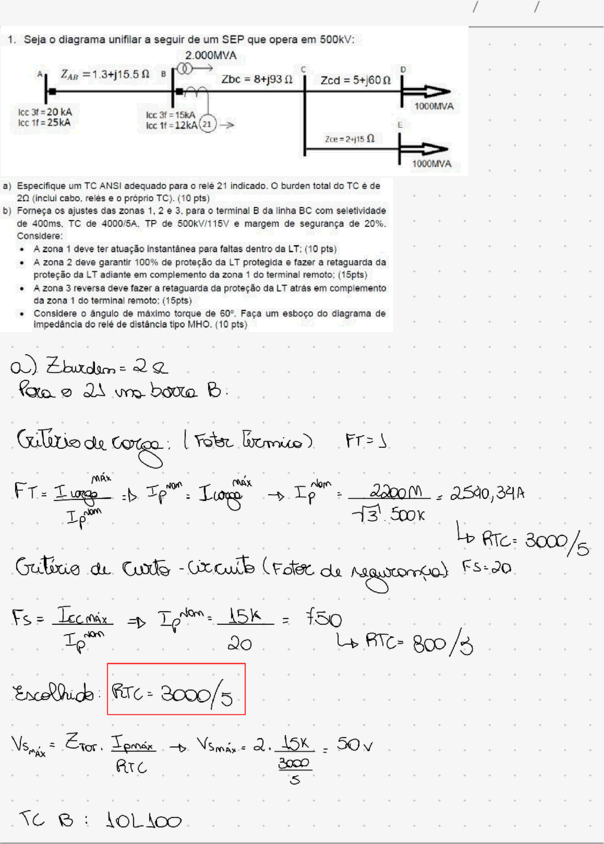 / /
1. Seja o diagrama unifilar a seguir de um SEP que opera em 500kV:
2.000MVA
A
Z_AB = 1.3+j15.5 Ω
B
Zbc = 8+j93 Ω
C
Zcd = 5+j60 Ω
D
1000MVA
Icc 3f = 20 kA
Icc 1f = 25kA
Icc 3f = 15kA
Icc 1f = 12kA
21
E
Zce = 2+j15 Ω
1000MVA
a) Especifique um TC ANSI adequado para o relé 21 indicado. O burden total do TC é de
2Ω (inclui cabo, relés e o próprio TC). (10 pts)
b) Forneça os ajustes das zonas 1, 2 e 3, para o terminal B da linha BC com seletividade
de 400ms, TC de 4000/5A, TP de 500kV/115V e margem de segurança de 20%.
Considere:
• A zona 1 deve ter atuação instantânea para faltas dentro da LT; (10 pts)
• A zona 2 deve garantir 100% de proteção da LT protegida e fazer a retaguarda da
proteção da LT adiante em complemento da zona 1 do terminal remoto; (15pts)
• A zona 3 reversa deve fazer a retaguarda da proteção da LT atrás em complemento
da zona 1 do terminal remoto; (15pts)
• Considere o ângulo de máximo torque de 60°. Faça um esboço do diagrama de
impedância do relé de distância tipo MHO. (10 pts)
a) Zburden = 2 Ω
Para o 21 na barra B:
Critério de carga: (Fator Térmico) FT=1
FT = I carga^máx / Ip^nom ⇒ Ip^nom = I carga^máx → Ip^nom = 2200M / √3 . 500k = 2540,34A
↳ RTC = 3000/5
Critério de Curto-Circuito (Fator de segurança) FS=20
Fs = Icc máx / Ip^nom ⇒ Ip^nom = 15k / 20 = 750
↳ RTC = 800/5
Escolhido: RTC = 3000/5
Vs_máx = Z_TOT . Ip máx / RTC → Vs máx = 2 . 15k / 3000/5 = 50 v
TC B : 10L100